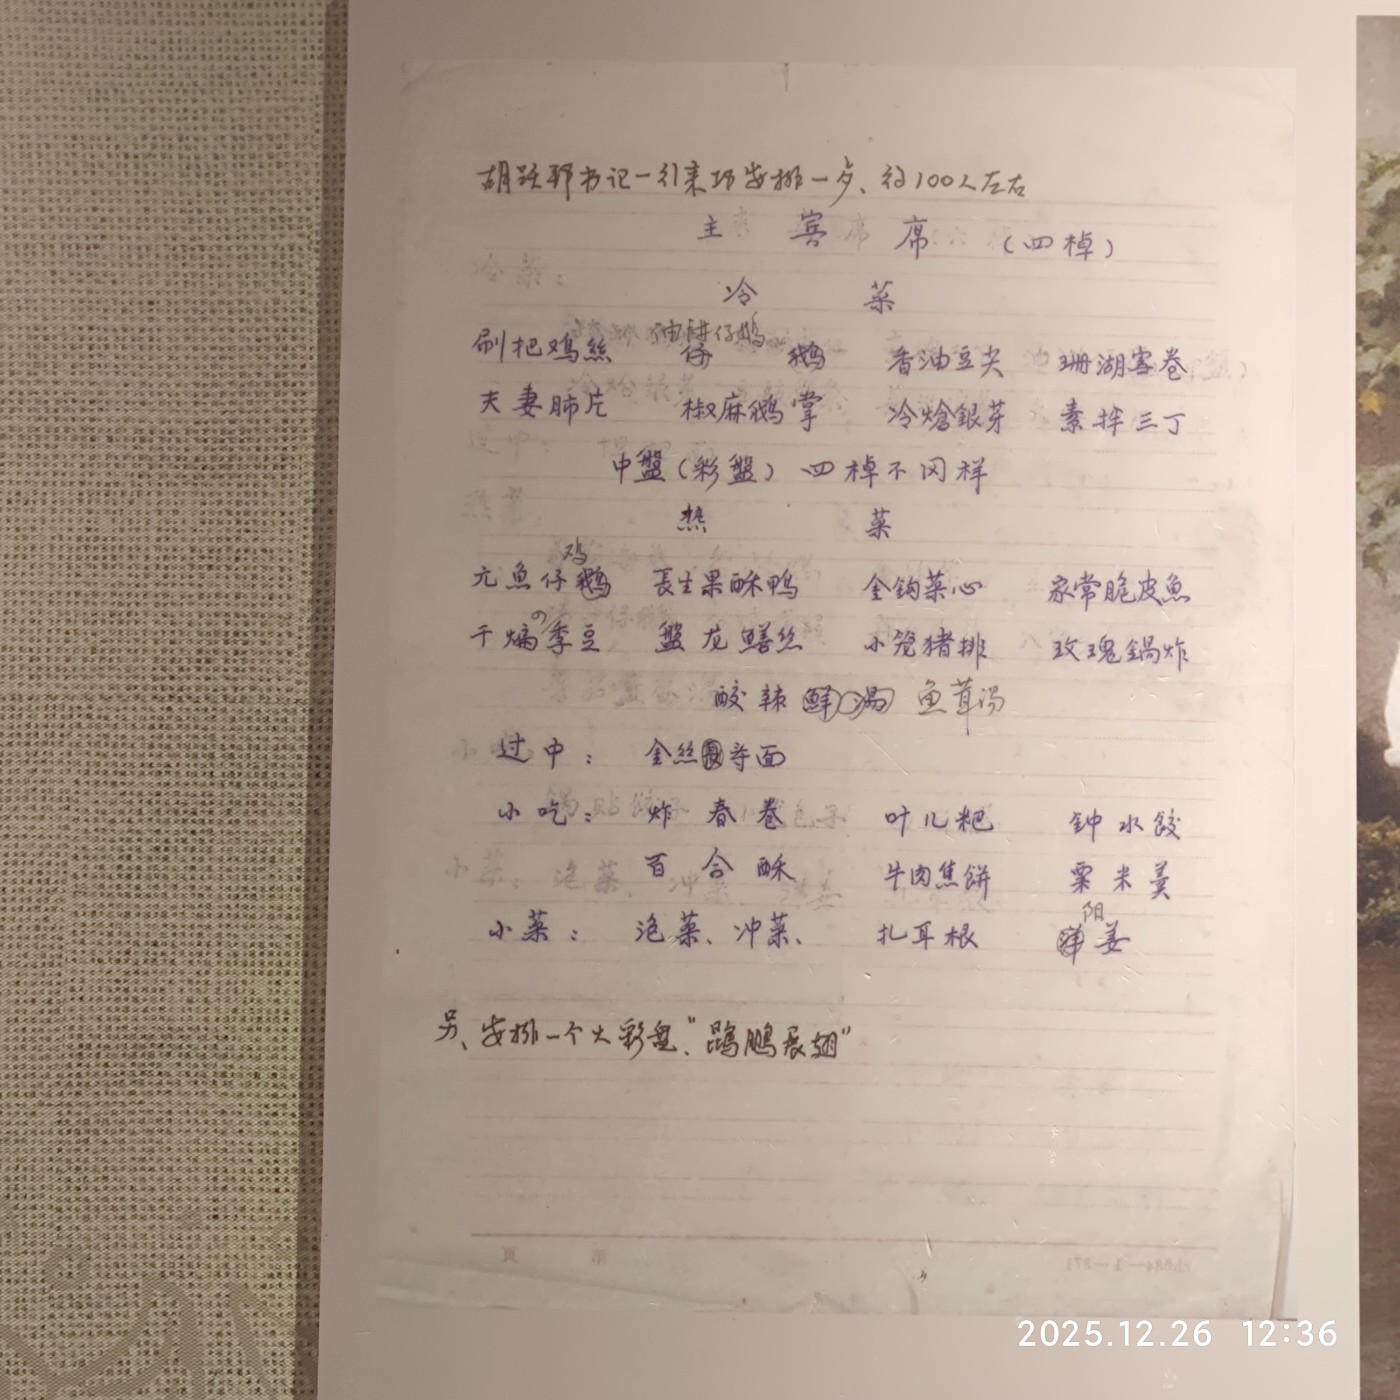 胡跃邦书记一行来邛安排一夕、约100人左右
主 宾 席 (四棹)
冷 菜
油酥仔鹅
刷把鸡絲 仔 鹅 香油豆尖 珊湖雪卷
夫妻肺片 椒麻鹅掌 冷熗銀芽 素拌三丁
中盤(彩盤) 四棹不冈样
热 菜
鸡
元魚仔鹅 長生果酥鸭 金钩菜心 家常脆皮魚
干煸の季豆 盤龙鳝丝 小笼猪排 玫瑰鍋炸
酸辣 鱼茸汤
过中： 金絲寺面
小吃： 炸春卷 叶儿粑 钟水餃
百合酥 牛肉焦餅 粟米羹
阳
小菜： 泡菜、冲菜、 扎耳根 洋姜
另、安排一个大彩盘、“鹍鹏展翅”
2025.12.26 12:36